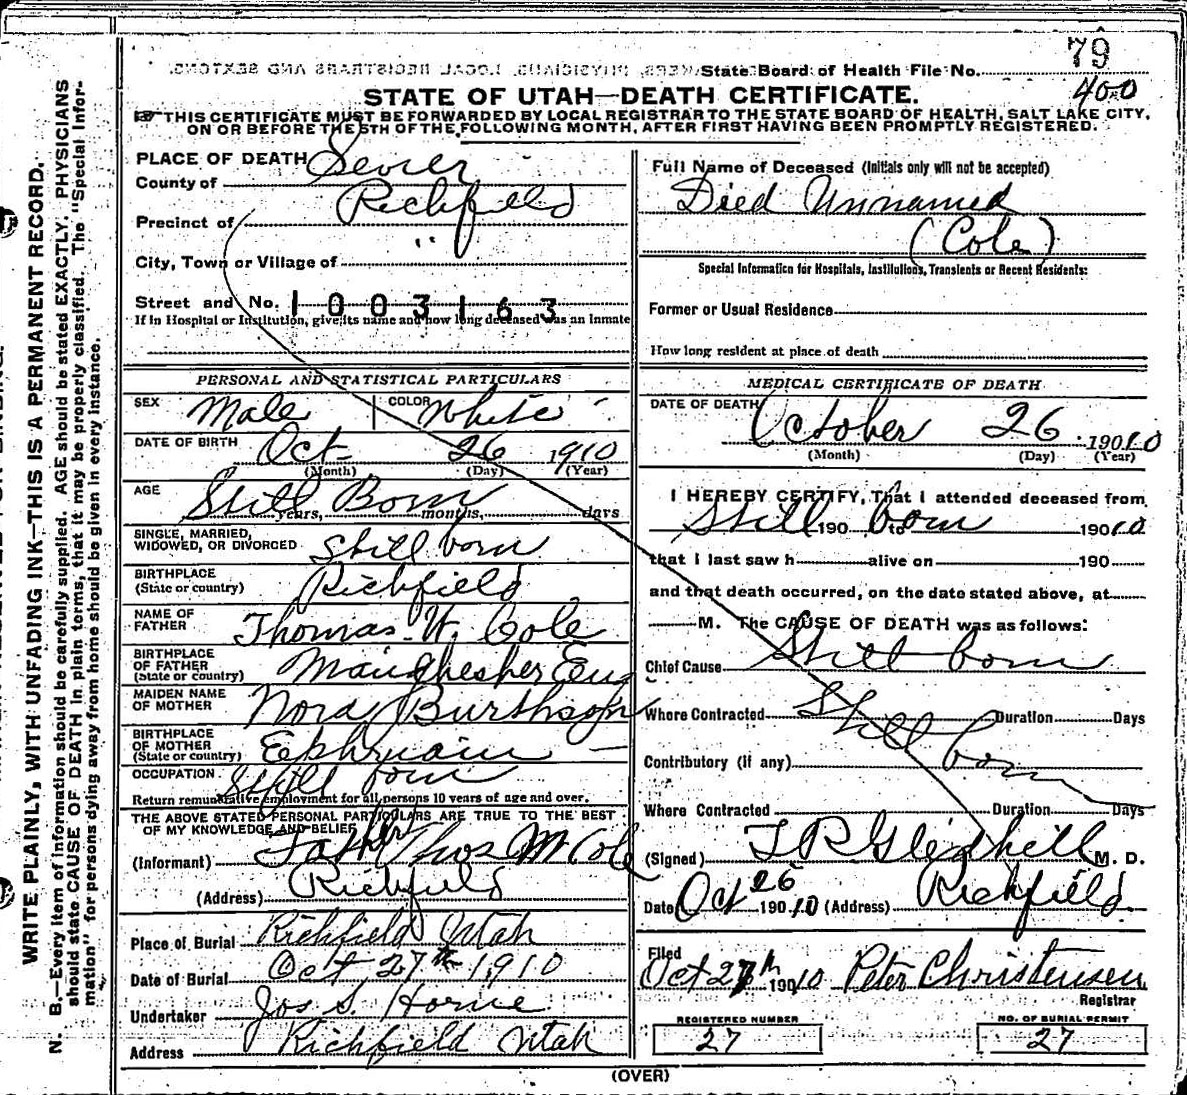 79
State Board of Health File No.
400
STATE OF UTAH—DEATH CERTIFICATE.
THIS CERTIFICATE MUST BE FORWARDED BY LOCAL REGISTRAR TO THE STATE BOARD OF HEALTH, SALT LAKE CITY,
ON OR BEFORE THE 5TH OF THE FOLLOWING MONTH, AFTER FIRST HAVING BEEN PROMPTLY REGISTERED.
PLACE OF DEATH
County of Sevier
Precinct of Richfield
City, Town or Village of "
Street and No. 1003163
If in Hospital or Institution, give its name and how long deceased was an inmate
PERSONAL AND STATISTICAL PARTICULARS
SEX Male COLOR White
DATE OF BIRTH Oct 26 1910
(Month) (Day) (Year)
AGE Still Born
years, months, days
SINGLE, MARRIED,
WIDOWED, OR DIVORCED Still born
BIRTHPLACE
(State or country) Richfield
NAME OF
FATHER Thomas W. Cole
BIRTHPLACE
OF FATHER
(State or country) Maughesher Eng
MAIDEN NAME
OF MOTHER Nora
BIRTHPLACE
OF MOTHER
(State or country) Ephraim
OCCUPATION Still born
Return remunerative employment for all persons 10 years of age and over.
THE ABOVE STATED PERSONAL PARTICULARS ARE TRUE TO THE BEST
OF MY KNOWLEDGE AND BELIEF
(Informant) Father Thos M Cole
(Address) Richfield
Place of Burial Richfield Utah
Date of Burial Oct 27th 1910
Undertaker Jos S. Horne
Address Richfield Utah
Full Name of Deceased (Initials only will not be accepted)
Died Unnamed
(Cole)
Special Information for Hospitals, Institutions, Transients or Recent Residents:
Former or Usual Residence
How long resident at place of death
MEDICAL CERTIFICATE OF DEATH
DATE OF DEATH
October 26 19010
(Month) (Day) (Year)
I HEREBY CERTIFY, That I attended deceased from
Still 190 to born 19010
that I last saw h alive on 190
and that death occurred, on the date stated above, at
M. The CAUSE OF DEATH was as follows:
Chief Cause Still born
Where Contracted Still Duration Days
Contributory (if any) born
Where Contracted Duration Days
(Signed) T R Gledhill M. D.
Date Oct 26 19010 (Address) Richfield
Filed
Oct 27th 19010 Peter Christensen
Registrar
REGISTERED NUMBER NO. OF BURIAL PERMIT
27 27
(OVER)
WRITE PLAINLY, WITH UNFADING INK—THIS IS A PERMANENT RECORD.
N. B.—Every item of information should be carefully supplied. AGE should be stated EXACTLY. PHYSICIANS
should state CAUSE OF DEATH in plain terms, that it may be properly classified. The "Special Infor-
mation" for persons dying away from home should be given in every instance.